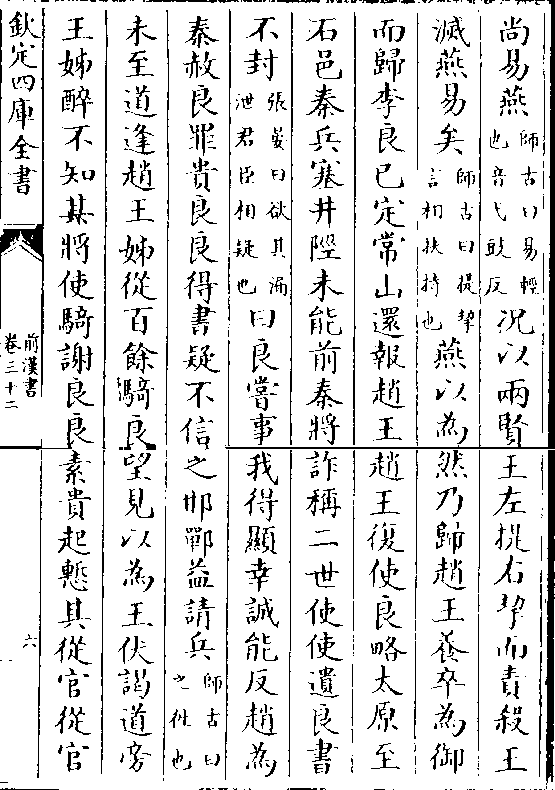 尚易燕師古曰易輕也音弋豉反況以兩賢王左提右挈而責殺王
滅燕易矣師古曰提挈言相扶持也燕以為然乃歸趙王養卒為御
而歸李良已定常山還報趙王趙王復使良略太原至
石邑秦兵塞井陘未能前秦將詐稱二世使使遺良書
不封張晏曰欲其漏泄君臣相疑也曰良嘗事我得顯幸誠能反趙為
秦赦良罪貴良良得書疑不信之邯鄲益請兵師古曰之往也
未至道逢趙王姊從百餘騎良望見以為王伏謁道旁
王姊醉不知其將使騎謝良良素貴起慙其從官從官
欽定四庫全書
前漢書
卷三十二
六